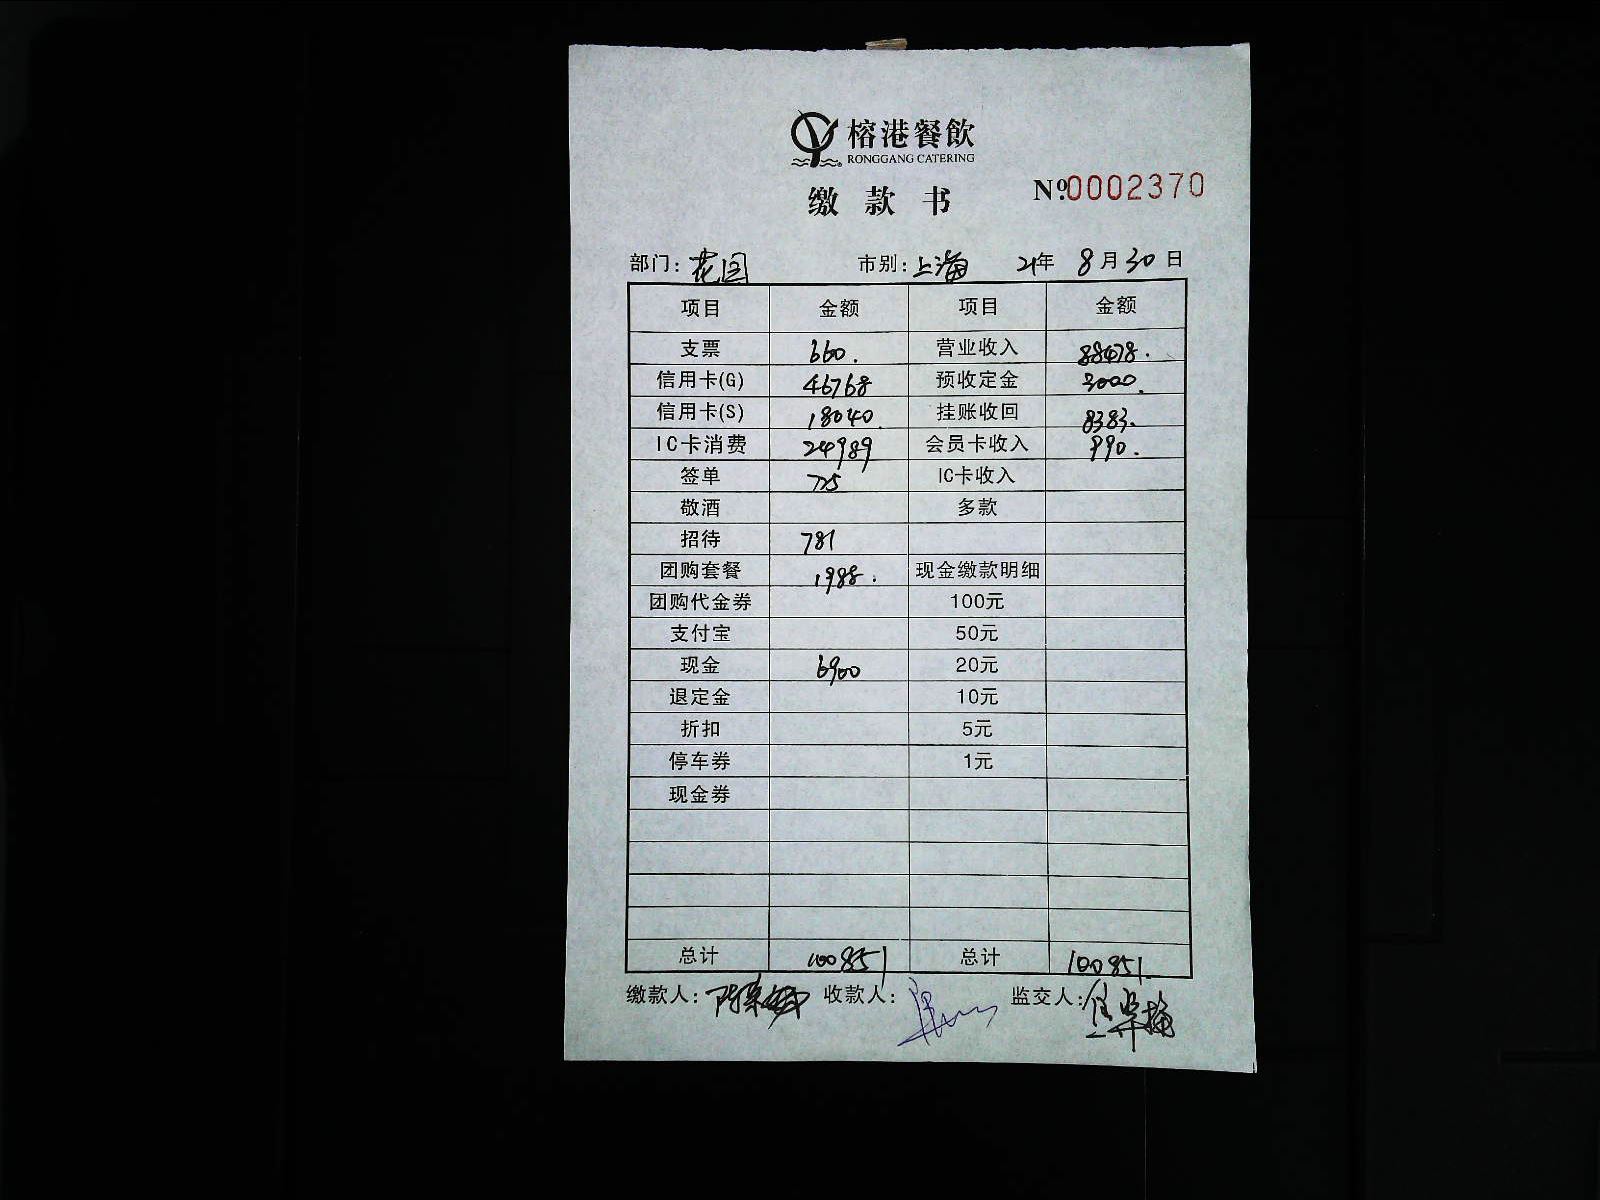 榕港餐飲
RONGGANG CATERING
缴款书 Nº.0002370
部门: 花园 市别: 上海 21年 8月30日
项目 金额 项目 金额
支票 660. 营业收入 88478.
信用卡(G) 46768 预收定金 3000.
信用卡(S) 18040. 挂账收回 8383.
IC卡消费 24989 会员卡收入 990.
签单 725 IC卡收入
敬酒 多款
招待 781
团购套餐 1988. 现金缴款明细
团购代金券 100元
支付宝 50元
现金 6900 20元
退定金 10元
折扣 5元
停车券 1元
现金券
总计 100851 总计 100851.
缴款人: 收款人: 监交人: